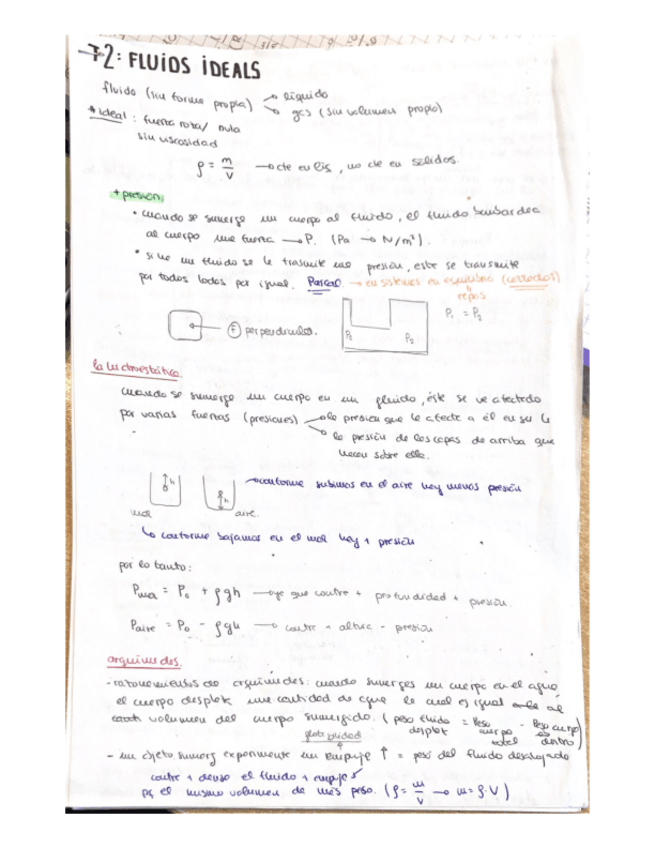 T2: FLUIDOS IDEALS
fluido (sin forma propia) → líquido
→ gas (sin volumen propio)
* ideal : fuerza rota/ nula
sin viscosidad
ρ = m/V → cte en líq, no cte en sólidos.
+ presión:
• cuando se sumerge un cuerpo al fluido, el fluido bombardea
al cuerpo una fuerza → P. (Pa → N/m²).
• si se un fluido se le trasmite una presión, este se transmite
por todos lados por igual. Pascal → en sistemas en equilibrio (cerrados)
repos
P₁ = P₂
F perpendicular.
P₁ P₂
cuando se sumerge un cuerpo en un fluido, éste se ve afectado
por varias fuerzas (presiones) → la presión que le afecta a él en su
→ la presión de las capas de arriba que
hacen sobre ella.
h h → conforme subimos en el aire hay menos presión
mar aire.
↳ conforme bajamos en el mar hay + presión
por lo tanto:
Pmar = P₀ + ρgh → que contre + profundidad + presión.
Paire = P₀ - ρgh → contre + altura - presión
arquímedes.
- razonamientos de arquímedes: cuando sumerges un cuerpo en el agua,
el cuerpo desplaz una cantidad de agua la cual es igual al
volumen del cuerpo sumergido. (peso fluido = Peso - Peso cuerpo
desplat cuerpo
total dentro)
flotabilidad
- un objeto sumerg experimenta un empuje ↑ = peso del fluido desalojado
contre + denso el fluido + empuje
pq el mismo volumen de más peso. (ρ = m/V → m = ρ·V)